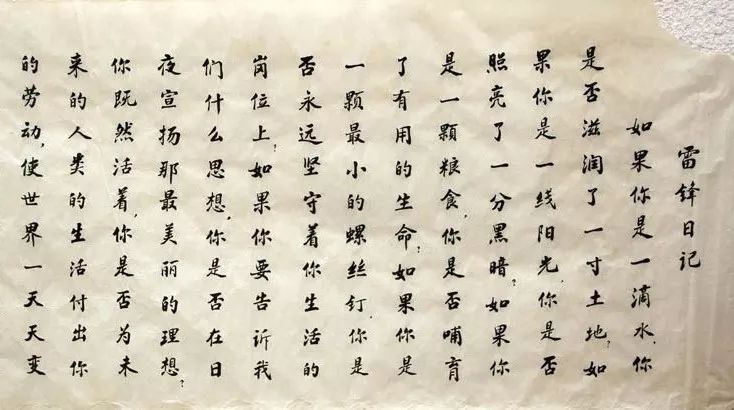 雷锋日记
如果你是一滴水,你
是否滋润了一寸土地?如
果你是一线阳光,你是否
照亮了一分黑暗?如果你
是一颗粮食,你是否哺育
了有用的生命?如果你是
一颗最小的螺丝钉,你是
否永远坚守着你生活的
岗位上?如果你要告诉我
们什么思想,你是否在日
夜宣扬那最美丽的理想?
你既然活着,你是否为未
来的人类的生活付出你
的劳动,使世界一天天变